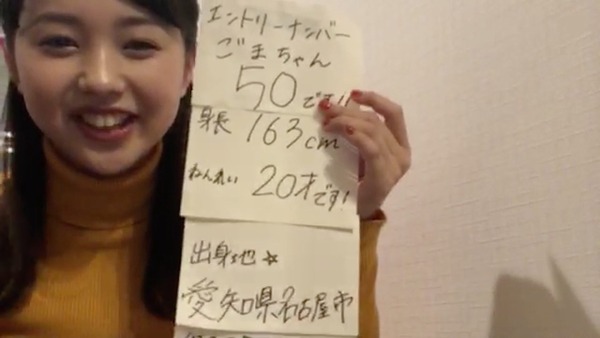 エントリーナンバー
ごまちゃん
50です!!
身長 163cm
ねんれい 20才です!
出身地☆
愛知県名古屋市